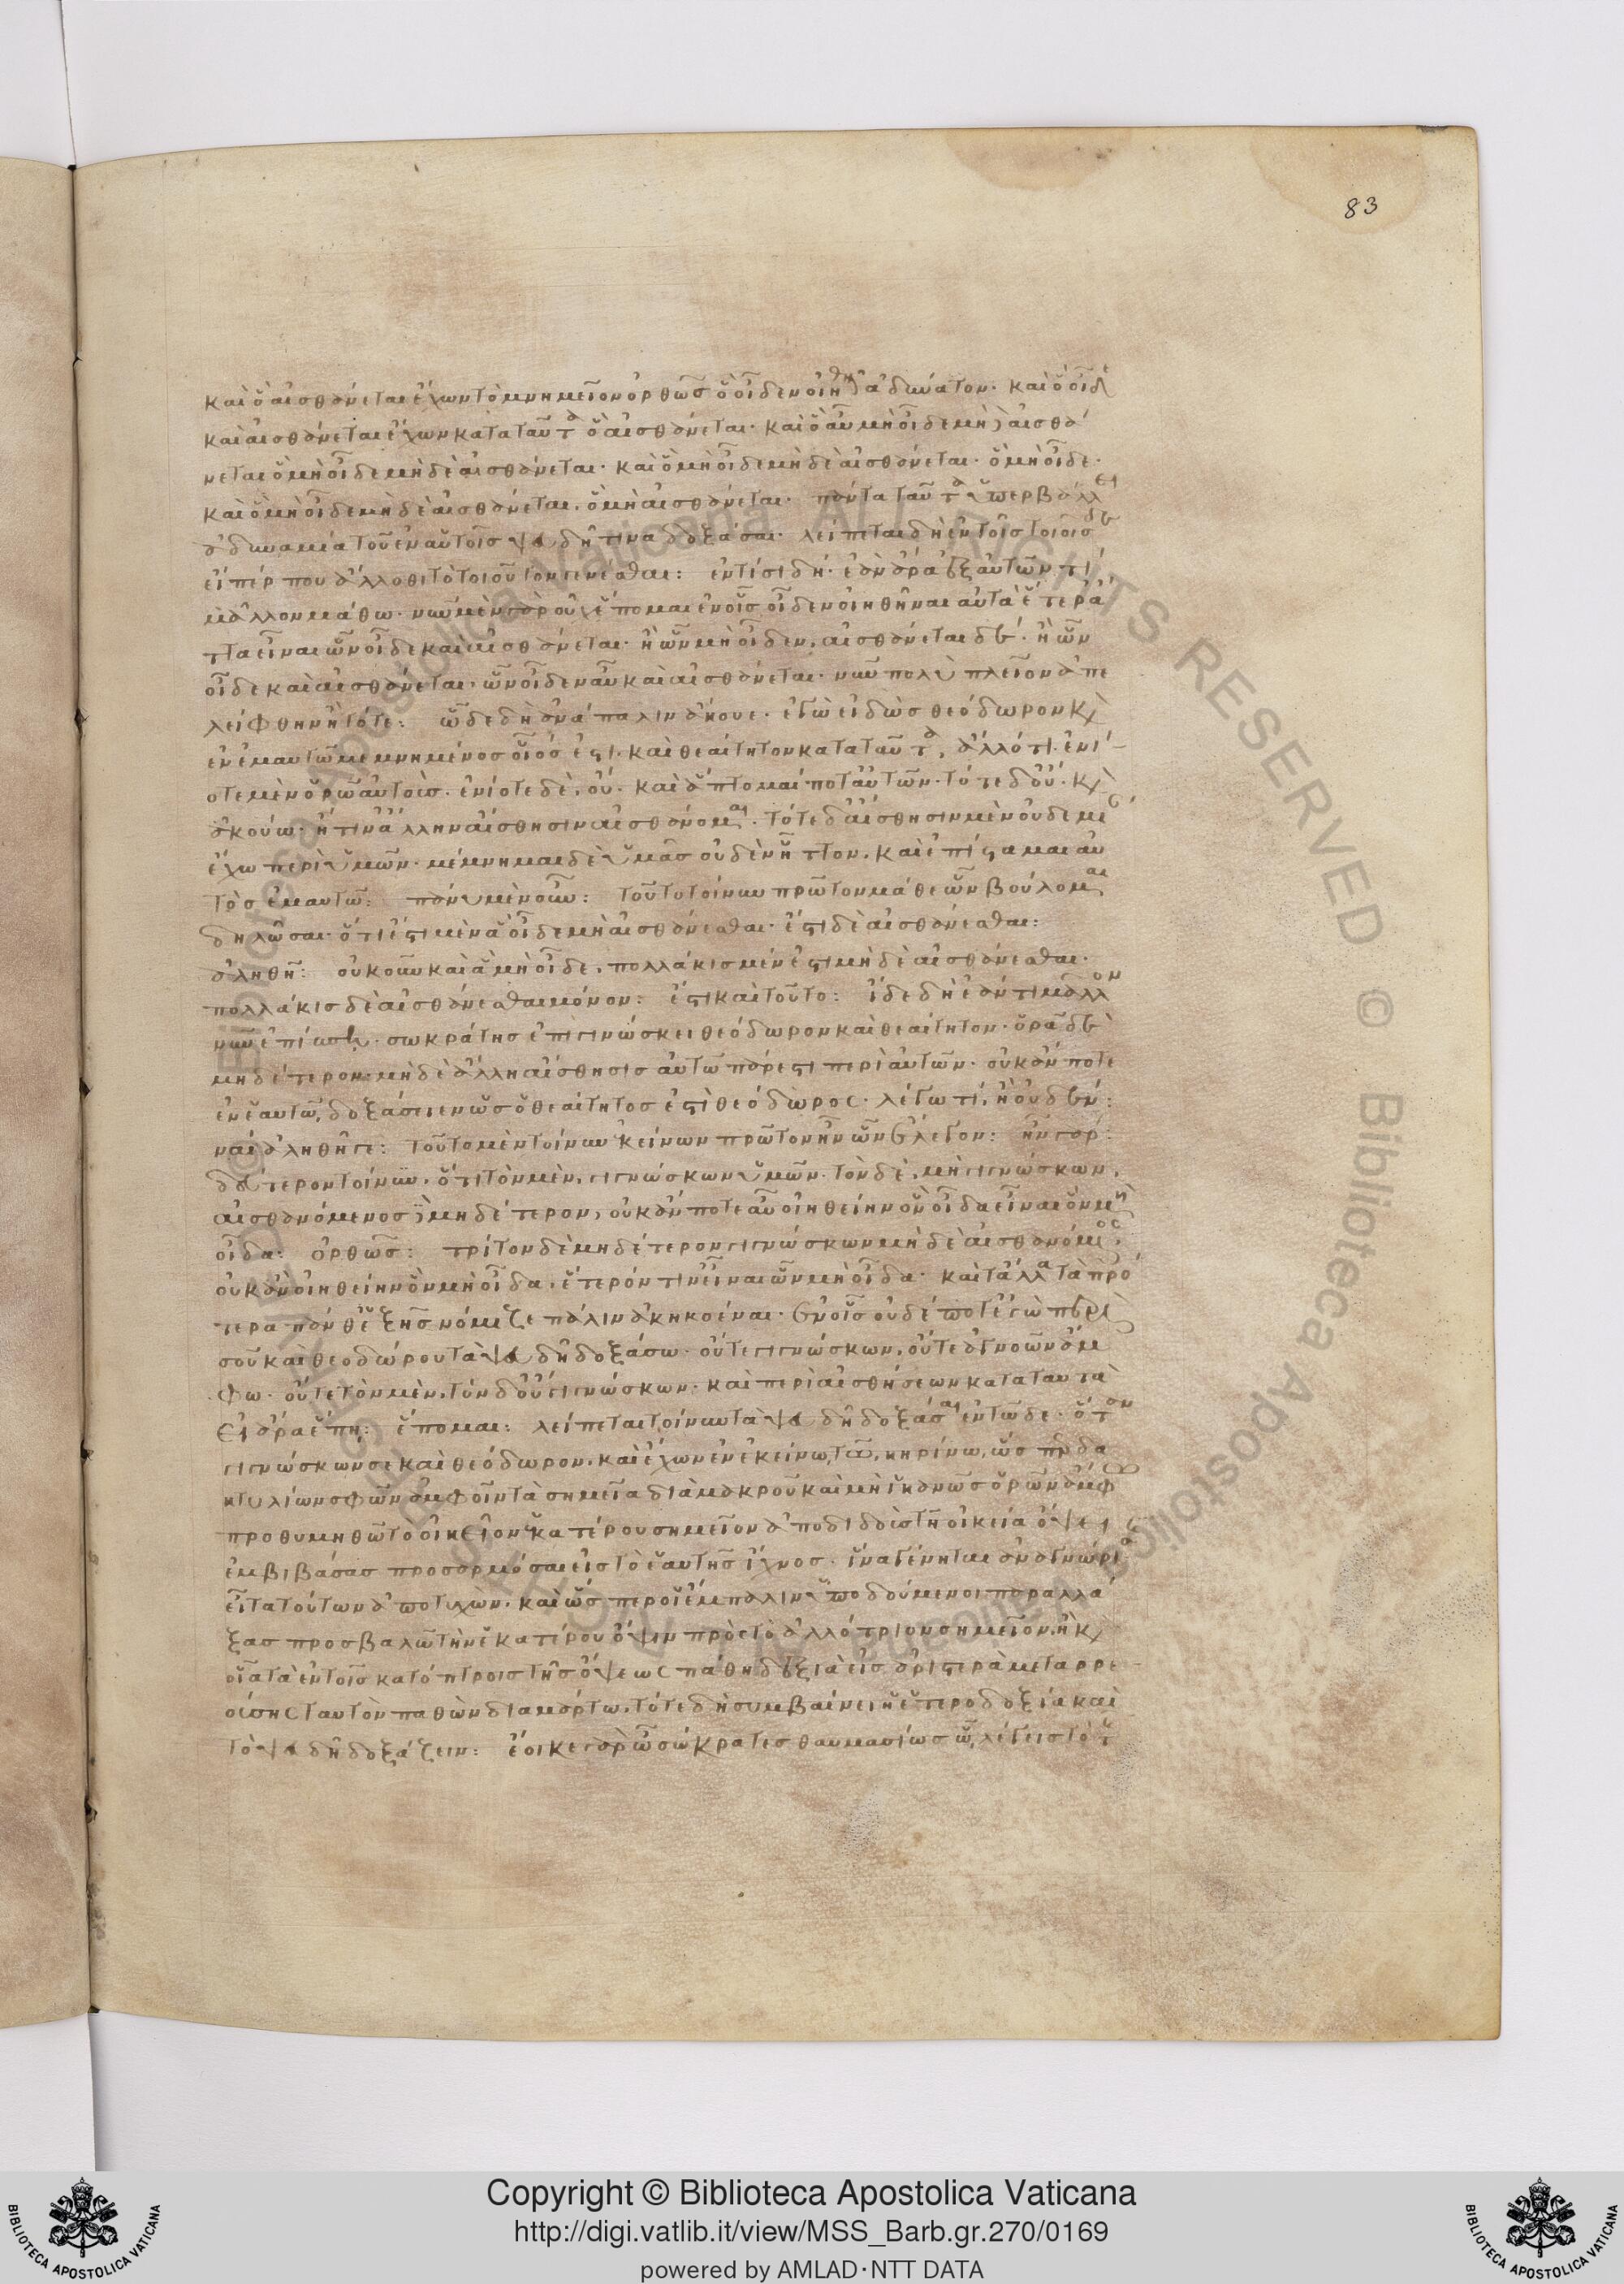 83
καὶ ὃ αἰσθάνεται ἔχων τὸ μνημεῖον ὀρθῶς ὃ οἶδεν οἰηθῆναι ἀδύνατον· καὶ ὃ οἶδε
καὶ αἰσθάνεται ἔχων κατὰ ταυτὰ ὃ αἰσθάνεται· καὶ ὃ αὖ μὴ οἶδε μηδὲ αἰσθά
νεται ὃ μὴ οἶδε μηδὲ αἰσθάνεται· καὶ ὃ μὴ οἶδε μηδὲ αἰσθάνεται· ὃ μὴ οἶδε·
καὶ ὃ μὴ οἶδε μηδὲ αἰσθάνεται, ὃ μὴ αἰσθάνεται· πάντα ταῦτα ὑπερβάλλει
ἀδυναμία τοῦ ἐν αὐτοῖς ψευδῆ τινα δοξάσαι· λείπεται δὴ ἐν τοῖς τοιοῖσδε
εἴπέρ που ἄλλοθι τὸ τοιοῦτον γενέσθαι: ἐν τίσι δή· ἐὰν ἄρα ἐξ αὐτῶν τι
μᾶλλον μάθω· νῦν μὲν γὰρ οὐχ ἕπομαι ἐν οἷς οἶδεν οἰηθῆναι αὐτὰ ἕτερ' ἄ
ττα εἶναι ὧν οἶδε καὶ αἰσθάνεται· ἢ ὧν μὴ οἶδεν, αἰσθάνεται δέ· ἢ ὧν
οἶδε καὶ αἰσθάνεται, ὧν οἶδεν αὖ καὶ αἰσθάνεται· νῦν πολὺ πλεῖον ἀπε
λείφθην ἢ τότε: ὧδε δὴ ἀνάπαλιν ἄκουε· ἐγὼ εἰδὼς θεόδωρον καὶ
ἐν ἐμαυτῶ μεμνημένος οἷός ἐστι· καὶ θεαίτητον κατὰ ταυτά, ἄλλό τι ἐνί
οτε μὲν ὁρῶ αὐτοὺς· ἐνίοτε δὲ, οὔ· καὶ ἅπτομαί ποτ' αὐτῶν· τότε δ' οὔ· καὶ
ἀκούω· ἤ τιν' ἄλλην αἴσθησιν αἰσθάνομαι· τότε δ' αἴσθησιν μὲν οὐδεμί
ἔχω περὶ ὑμῶν· μέμνημαι δὲ ὑμᾶς οὐδὲν ἧττον, καὶ ἐπίσταμαι αὐ
τὸς ἐμαυτῶ: πάνυ μὲν οὖν: τοῦτο τοίνυν πρῶτον μάθε ὧν βούλομαι
δηλῶσαι· ὅτι ἔστι μὲν ἃ οἶδε μὴ αἰσθάνεσθαι· ἔστι δὲ αἰσθάνεσθαι:
ἀληθῆ: οὐκοῦν καὶ ἃ μὴ οἶδε, πολλάκις μὲν ἔστι μηδὲ αἰσθάνεσθαι·
πολλάκις δὲ αἰσθάνεσθαι μόνον: ἔστι καὶ τοῦτο: ἴδε δὴ ἐάν τι μᾶλλον
νῦν ἐπίσπῃ· σωκράτης ἐπιγινώσκει θεόδωρον καὶ θεαίτητον· ὁρᾶ δὲ
μηδέτερον· μηδὲ ἄλλη αἴσθησις αὐτῶ πάρεστι περὶ αὐτῶν· οὐκ ἄν ποτε
ἐν ἑαυτῶ, δοξάσειεν ὡς ὁ θεαίτητος ἐστὶ θεόδωρος· λέγω τί, ἢ οὐδέν:
ναὶ ἀληθῆ γε: τοῦτο μὲν τοίνυν ἐκείνων πρῶτον ἦν ὧν ἔλεγον: ἦν γάρ:
δεύτερον τοίνυν, ὅτι τὸν μὲν, γιγνώσκων ὑμῶν· τὸν δὲ, μὴ γιγνώσκων,
αἰσθανόμενος δὲ μηδέτερον, οὐκ ἄν ποτε αὖ οἰηθείην ὃν οἶδα εἶναι ὃν μὴ
οἶδα: ὀρθῶς: τρίτον δὲ μηδέτερον γιγνώσκων μηδὲ αἰσθανόμενος,
οὐκ ἂν οἰηθείην ὃν μὴ οἶδα, ἕτερόν τιν' εἶναι ὧν μὴ οἶδα· καὶ τἄλλα τὰ πρό
τερα πάνθ' ἑξῆς νόμιζε πάλιν ἀκηκοέναι· ἐν οἷς οὐδέποτ' ἐγὼ περὶ
σοῦ καὶ θεοδώρου τὰ ψευδῆ δοξάσω· οὔτε γιγνώσκων, οὔτε ἀγνοῶν ἄμ
φω· οὔτε τὸν μὲν, τὸν δ' οὐ γιγνώσκων· καὶ περὶ αἰσθήσεων κατὰ ταυτὰ
εἰ ἄρα ἕπῃ: ἕπομαι: λείπεται τοίνυν τὰ ψευδῆ δοξάσαι ἐν τῶδε· ὅταν
γιγνώσκων σὲ καὶ θεόδωρον, καὶ ἔχων ἐν ἐκείνω, τῶ, κηρίνω, ὥσπερ δα
κτυλίων σφῶν ἀμφοῖν τὰ σημεῖα διὰ μακροῦ καὶ μὴ ἱκανῶς ὁρῶν ἄμφω
προθυμηθῶ τὸ οἰκεῖον ἑκατέρου σημεῖον ἀποδιδοὺς τῆ οἰκεία ὄψει
ἐμβιβάσας προσαρμόσαι εἰς τὸ ἑαυτῆς ἴχνος· ἵνα γένηται ἀναγνώρισις
εἶτα τούτων ἀποτυχὼν, καὶ ὥσπερ οἱ ἔμπαλιν ὑποδούμενοι παραλλά
ξας προσβαλῶ τὴν ἑκατέρου ὄψιν πρὸς τὸ ἀλλότριον σημεῖον, ἢ καὶ
οἷα τὰ ἐν τοῖς κατόπτροις τῆς ὄψεως πάθη δεξιὰ εἰς ἀριστερὰ μεταρρε
ούσης ταυτὸν παθὼν διαμάρτω, τότε δὴ συμβαίνει ἡ ἑτεροδοξία καὶ
τὸ ψευδῆ δοξάζειν: ἔοικε γὰρ ὦ σώκρατες θαυμασίως ὡς, λέγεις τὸ τ
Copyright © Biblioteca Apostolica Vaticana
http://digi.vatlib.it/view/MSS_Barb.gr.270/0169
powered by AMLAD·NTT DATA
BIBLIOTECA APOSTOLICA VATICANA
BIBLIOTECA APOSTOLICA VATICANA